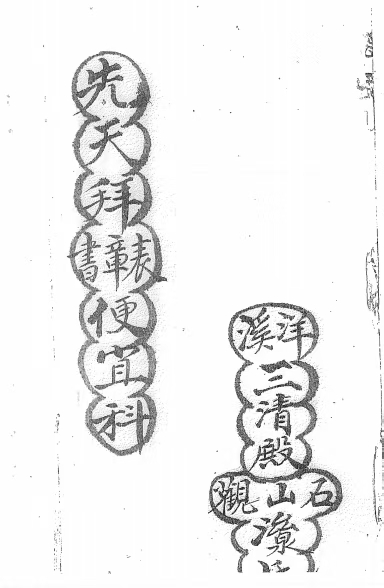 洋溪三清殿石山觀
先天拜表章書便宜科